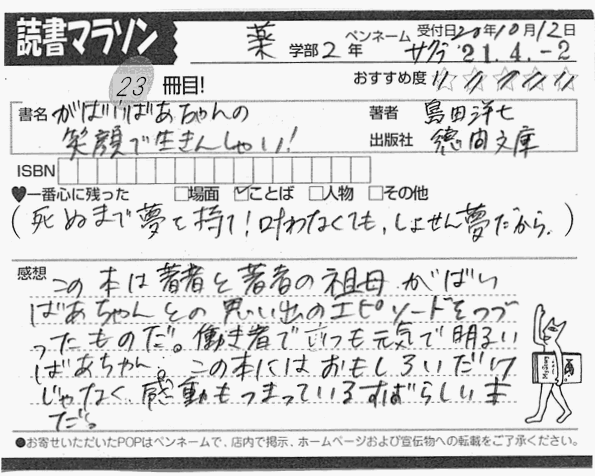 読書マラソン
薬 学部 2年 ペンネーム サクラ 受付日 20年10月12日
'21.4.-2
23 冊目!
おすすめ度 ☆☆☆☆☆
書名 がばいばあちゃんの
笑顔で生きんしゃい!
著者 島田洋七
出版社 徳間文庫
ISBN
♥一番心に残った □場面 ☑ことば □人物 □その他
(死ぬまで夢を持て!叶わなくても、しょせん夢だから。)
感想
この本は著者と著者の祖母、がばい
ばあちゃんとの思い出のエピソードをつづ
ったものだ。働き者でいつも元気で明るい
ばあちゃん。この本にはおもしろいだけ
じゃなく、感動もつまっているすばらしい本
だ。
●お寄せいただいたPOPはペンネームで、店内で掲示、ホームページおよび宣伝物への転載をご了承ください。